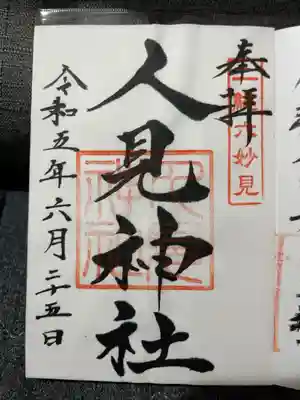 奉拝
人見神社
令和五年六月二十五日
妙見